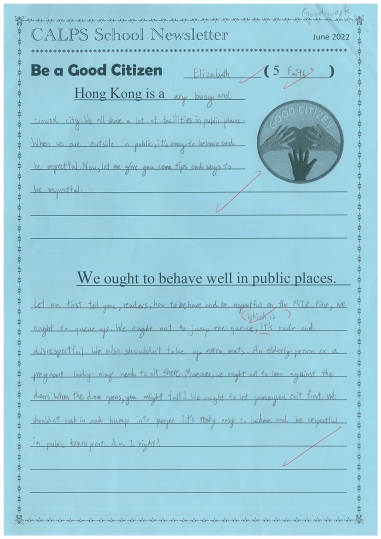 Good work
CALPS School Newsletter
June 2022
Be a Good Citizen Elizabeth ( 5 Faith )
Hong Kong is a very busy and
crowed city. We all share a lot of facilities in public places.
When we are outside in public, it's easy to behave and
be respectful. Now, let me give you some tips and ways to
be respectful.
GOOD CITIZEN
We ought to behave well in public places.
Let me first tell you, readers, how to behave and be respectful on the MTR. First, we
(which is)
ought to queue up. We ought not to jump the queue, it's rude and
disrespectful. We also shouldn't take up extra seats. An elderly person or a
pregnant lady may need to sit there. Moreover, we ought not to lean against the
doors. When the door opens, you might fall! We ought to let passengers exit first. We
shouldn't rush in and bump into people. It's really easy to behave and be respectful
in public transport. Am I right?